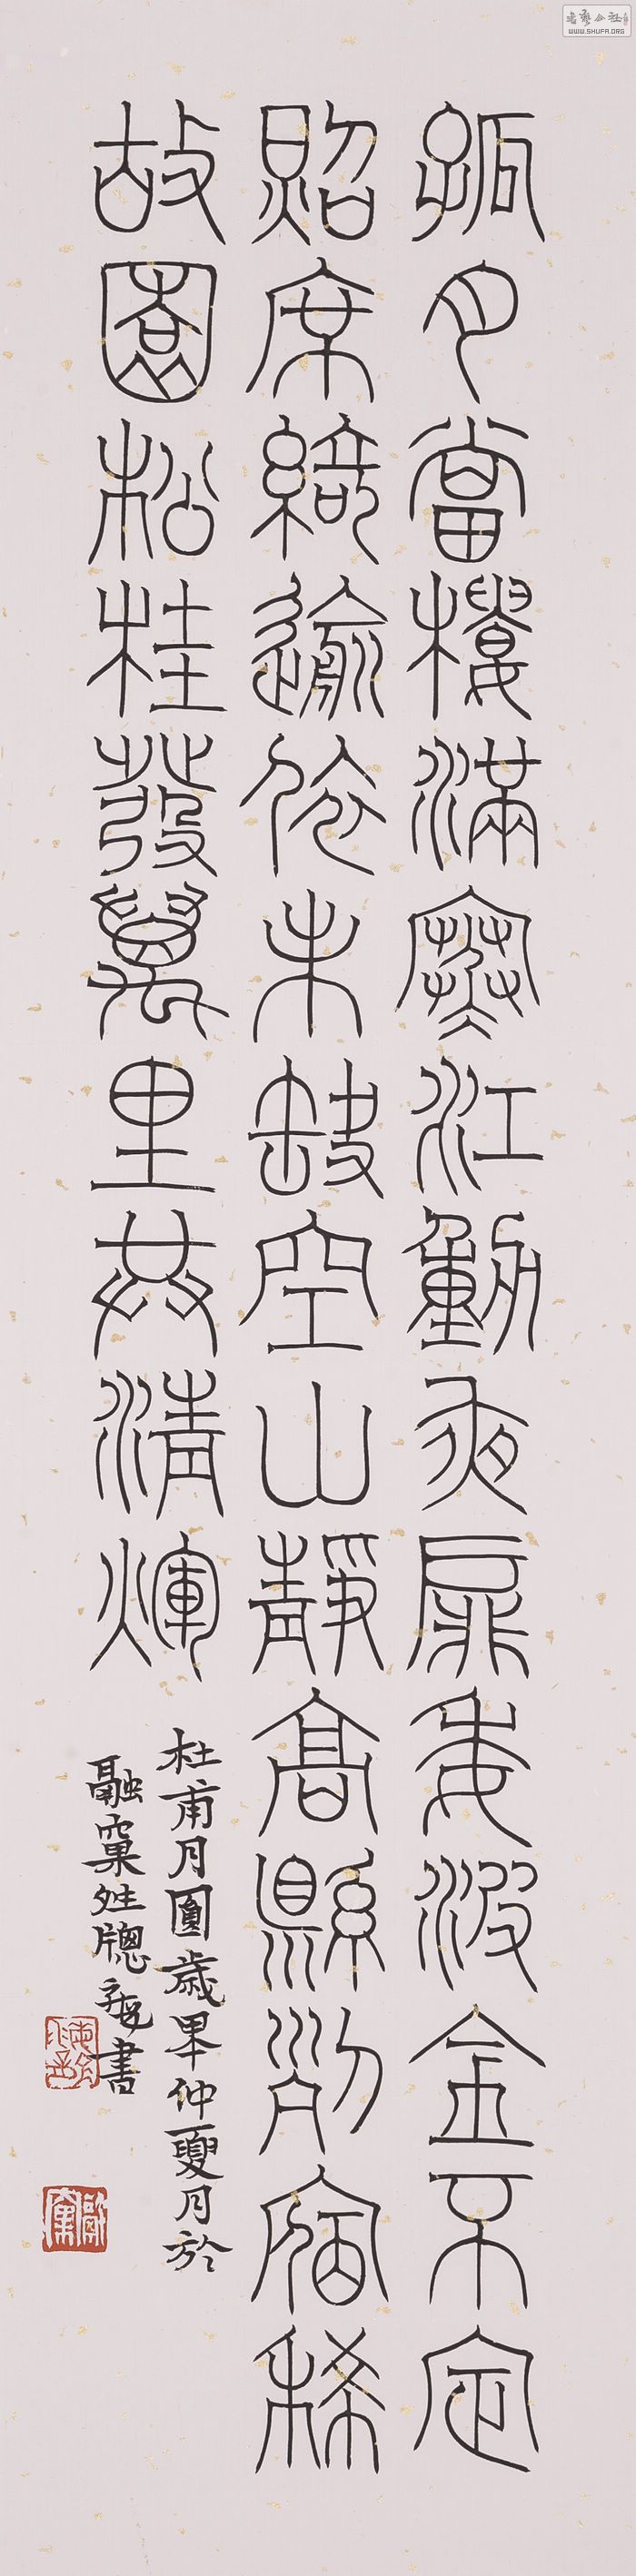 書藝公社
WWW.SHUFA.ORG
孤月當樓滿寒江動夜扉委波金不定
照席綺逾依未缺空山靜高縣列宿稀
故園松桂發萬里共清煇
杜甫月圓歲甲午仲夏月於
融窠牕書